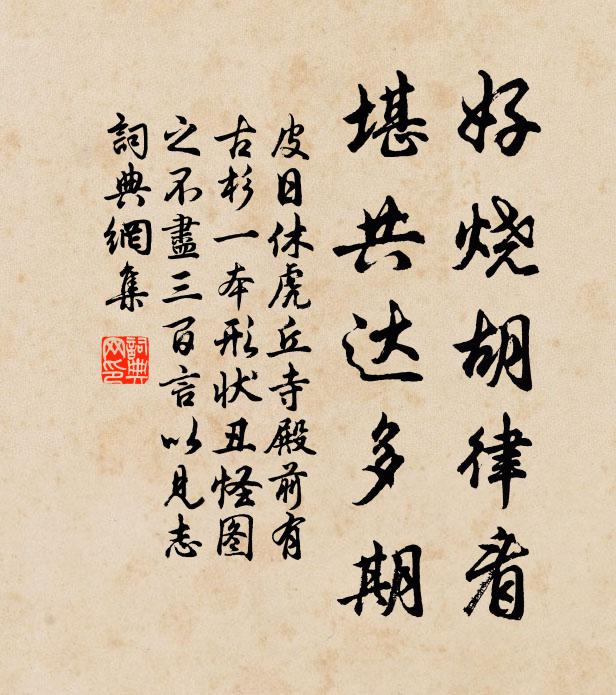 好烧胡律看
堪共达多期
皮日休虎丘寺殿前有
古杉一本形状丑怪图
之不盡三百言以見志
詞典網集
詞典
网印